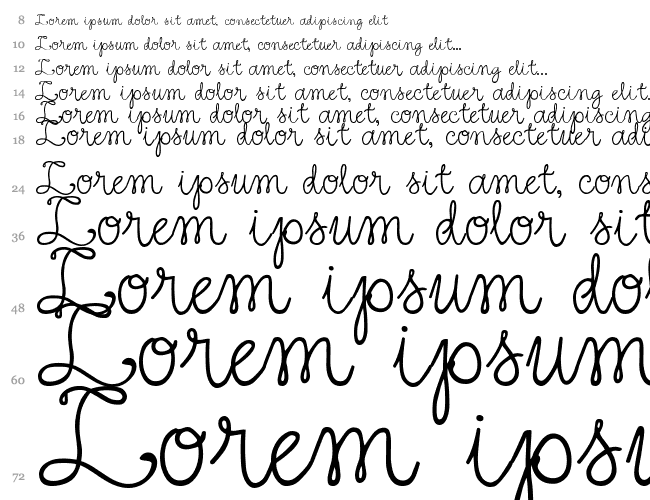 8 Lorem ipsum dolor sit amet, consectetuer adipiscing elit
10 Lorem ipsum dolor sit amet, consectetuer adipiscing elit...
12 Lorem ipsum dolor sit amet, consectetuer adipiscing elit...
14 Lorem ipsum dolor sit amet, consectetuer adipiscing elit.
16 Lorem ipsum dolor sit amet, consectetuer adipiscing
18 Lorem ipsum dolor sit amet, consectetuer adi
24 Lorem ipsum dolor sit amet, cons
36 Lorem ipsum dolor sit
48 Lorem ipsum do
60 Lorem ipsum
72 Lorem ips